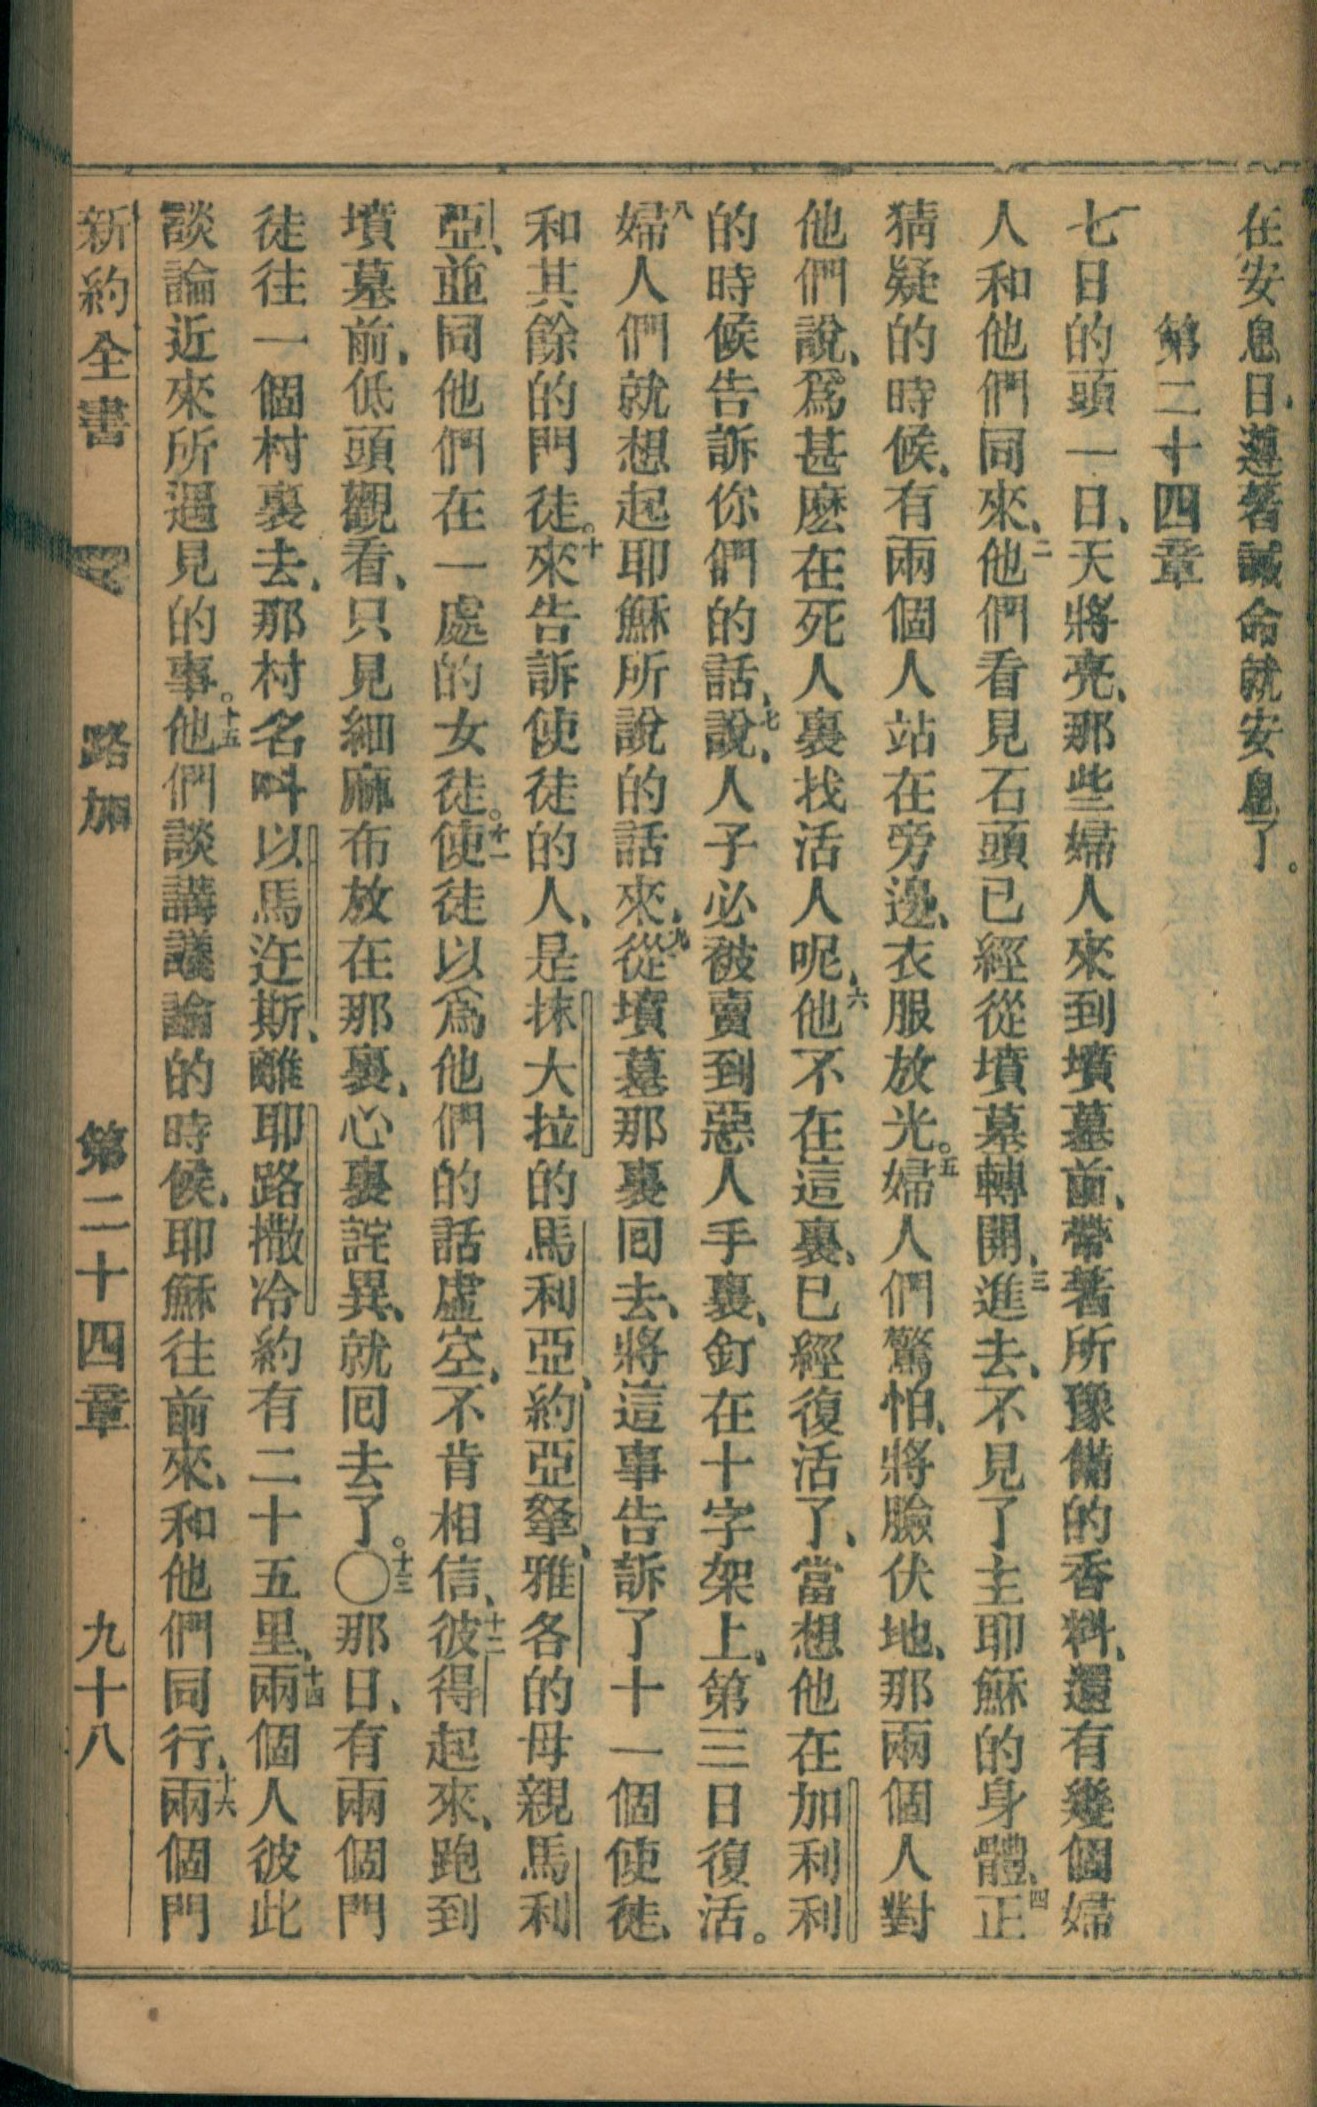 在安息日、遵著誡命就安息了。
第二十四章
一七日的頭一日、天將亮、那些婦人來到墳墓前、帶著所豫備的香料、還有幾個婦
人和他們同來、二他們看見石頭已經從墳墓轉開、三進去、不見了主耶穌的身體、四正
猜疑的時候、有兩個人站在旁邊、衣服放光。五婦人們驚怕、將臉伏地、那兩個人對
他們說、爲甚麽在死人裏找活人呢、六他不在這裏、已經復活了、當想他在加利利
的時候告訴你們的話、七說、人子必被賣到惡人手裏、釘在十字架上、第三日復活。
八婦人們就想起耶穌所說的話來、九從墳墓那裏回去、將這事告訴了十一個使徒、
和其餘的門徒。十來告訴使徒的人、是抹大拉的馬利亞、約亞拏、雅各的母親馬利
亞、並同他們在一處的女徒。十一使徒以爲他們的話虛空、不肯相信、十二彼得起來、跑到
墳墓前、低頭觀看、只見細麻布放在那裏、心裏詫異、就回去了。〇十三那日、有兩個門
徒往一個村裏去、那村名呌以馬迕斯、離耶路撒冷約有二十五里、十四兩個人彼此
談論近來所遇見的事。十五他們談講議論的時候、耶穌往前來、和他們同行、十六兩個門
新約全書 路加 第二十四章 九十八